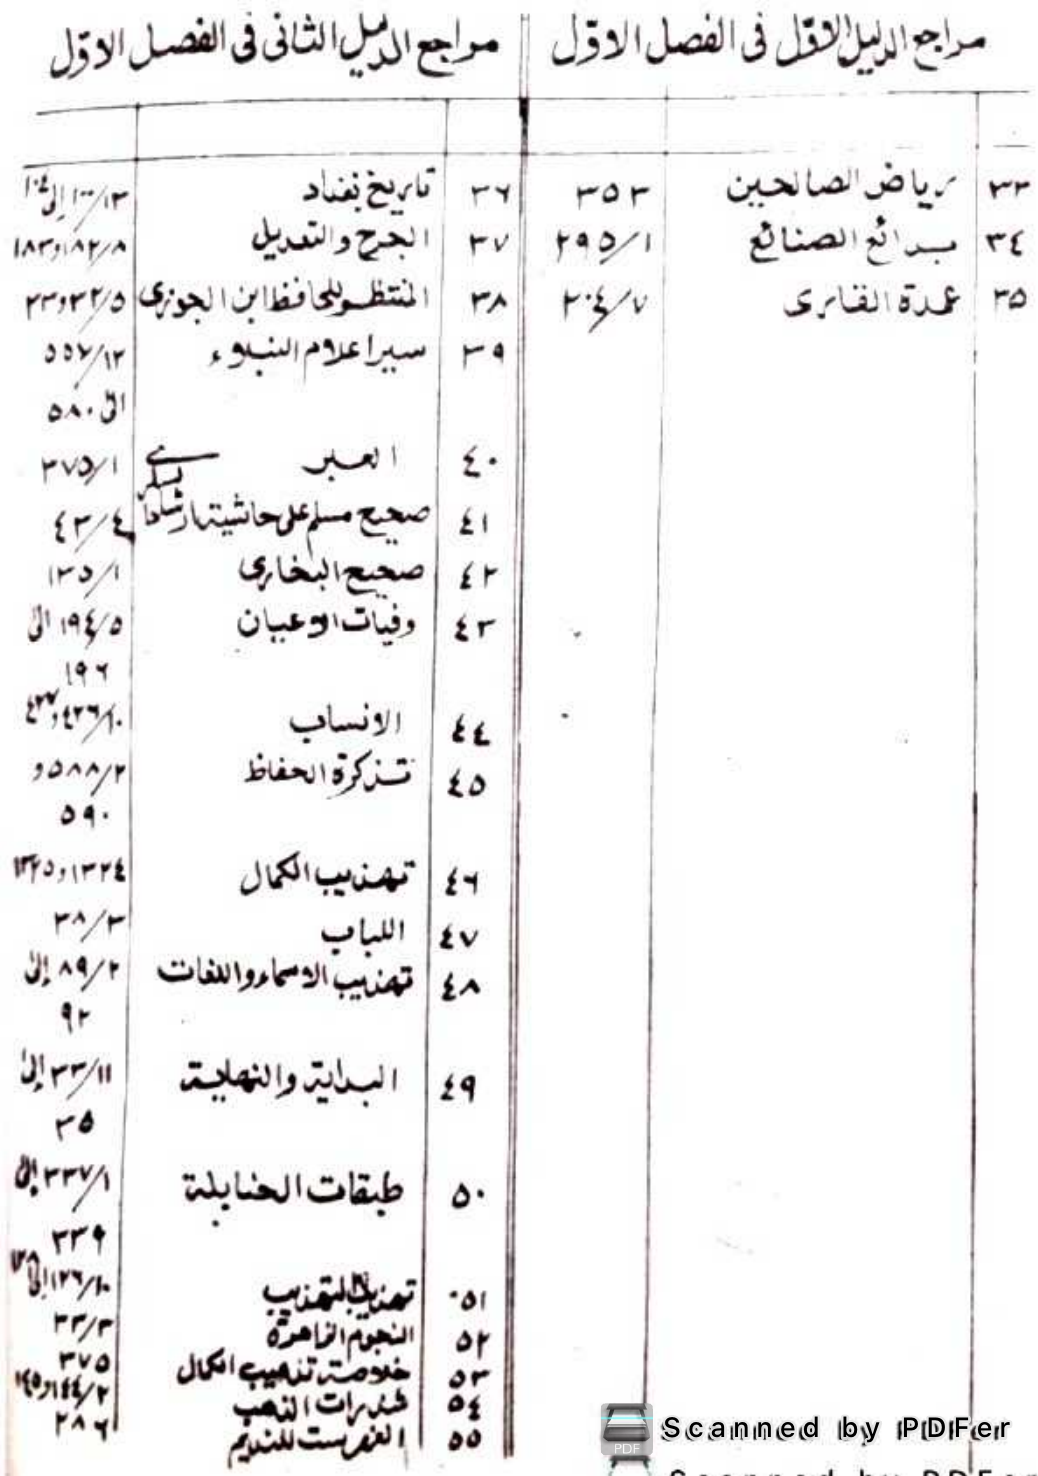 مراجع الدليل الاوّل فى الفصل الاوّل
٣٣ رياض الصالحين ٣٥٣
٣٤ بدائع الصنائع ٢٩٥/١
٣٥ عمدة القارى ٢٠٤/٧
مراجع الدليل الثانى فى الفصل الاوّل
٣٦ تاريخ بغداد ١٠٠/١٣ إلى ١٠٤
٣٧ الجرح والتعديل ١٨٢/٨ و١٨٣
٣٨ المنتظم للحافظ ابن الجوزى ٣٢/٥ و٣٣
٣٩ سير اعلام النبلاء ٥٥٧/١٢
الى ٥٨٠
٤٠ العبر ٣٧٥/١
٤١ صحيح مسلم على حاشية ارشاد السارى ٤٣/٤
٤٢ صحيح البخارى ١٣٥/١
٤٣ وفيات الاعيان ١٩٤/٥ الى
١٩٦
٤٤ الانساب ٤٢٦/١٠ و٤٢٧
٤٥ تذكرة الحفاظ ٥٨٨/٢ و
٥٩٠
٤٦ تهذيب الكمال ١٣٢٤ و١٣٢٥
٤٧ اللباب ٣٨/٣
٤٨ تهذيب الاسماء واللغات ٨٩/٢ إلى
٩٢
٤٩ البداية والنهاية ٣٣/١١ إلى
٣٥
٥٠ طبقات الحنابلة ٣٣٧/١ إلى
٣٣٩
٥١ تهذيب التهذيب ١٢٦/١٠ إلى ١٢٨
٥٢ النجوم الزاهرة ٣٣/٣
٥٣ خلاصة تذهيب الكمال ٣٧٥
٥٤ شذرات الذهب ١٤٤/٢ و١٤٥
٥٥ الفهرست للنديم ٢٨٦
PDF
Scanned by PDFer
Scanned by PDFer